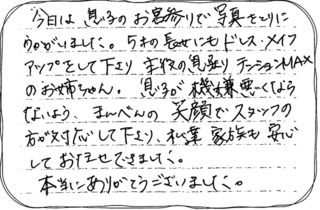 今日は息子のお宮参りで写真をとりに
うかがいました。5才の長女にもドレス・メイク
アップをして下り 主役の息子よりテンションMAX
のお姉ちゃん。息子が機嫌悪くなら
ないよう、まんべんの笑顔でスタッフの
方が対応して下り、私達家族も安心
しておまかせできました。
本当にありがとうございました。